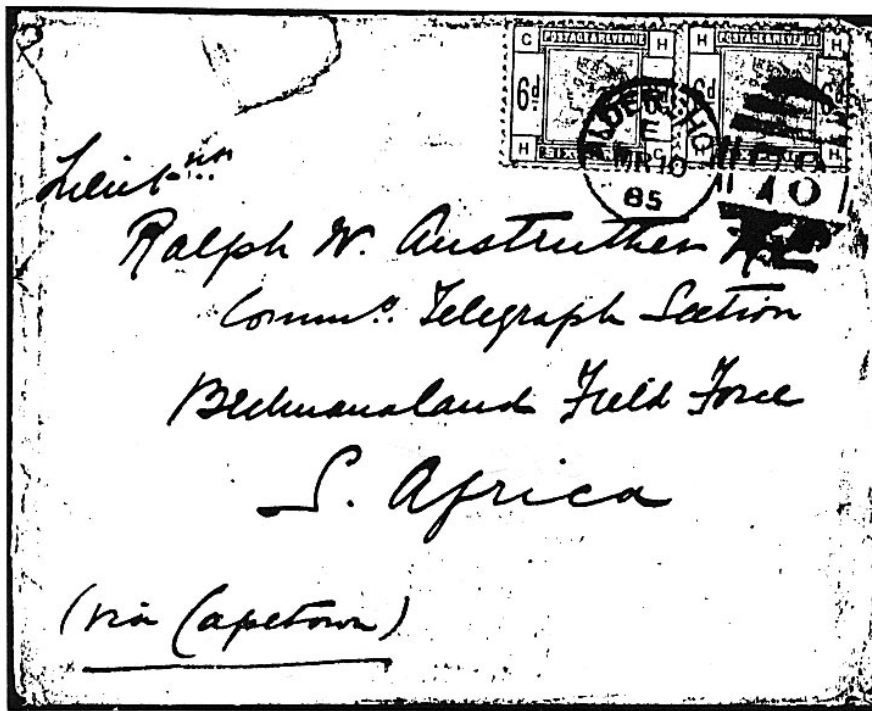 G POSTAGE & REVENUE H
H POSTAGE & REVENUE H
6d
6d
H SIX G
H
ALDERSHOT
E
MR 10
85
A0
Lieut-nn
Ralph W. Anstruther RE
Commg. Telegraph Section
Bechuanaland Field Force
S. Africa
(via Capetown)